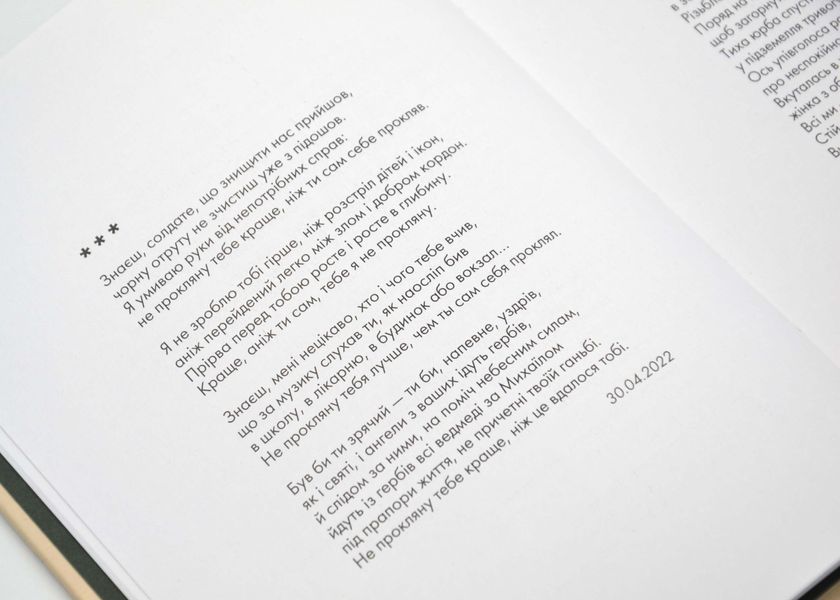 * * *
Знаєш, солдате, що знищити нас прийшов,
чорну отруту не зчистиш уже з підошов.
Я умиваю руки від непотрібних справ:
не прокляну тебе краще, ніж ти сам себе прокляв.
Я не зроблю тобі гірше, ніж розстріл дітей і ікон,
аніж перейдений легко між злом і добром кордон.
Прірва перед тобою росте і росте в глибину.
Краще, аніж ти сам, тебе я не прокляну.
Знаєш, мені нецікаво, хто і чого тебе вчив,
що за музику слухав ти, як наосліп бив
в школу, в лікарню, в будинок або вокзал...
Не прокляну тебя лучше, чем ты сам себя проклял.
Був би ти зрячий — ти би, напевне, уздрів,
як і святі, і ангели з ваших ідуть гербів,
й слідом за ними, на поміч небесним силам,
йдуть із гербів всі ведмеді за Михаїлом
під прапори життя, не причетні твоїй ганьбі.
Не прокляну тебе краще, ніж це вдалося тобі.
30.04.2022
в з
Різьбл
Поряд на
щоб загорну
Тиха юрба спус
у підземелля трива
Ось упівголоса
про неспокійн
Вкуталась в
жінка з об
Всі ми
Стій